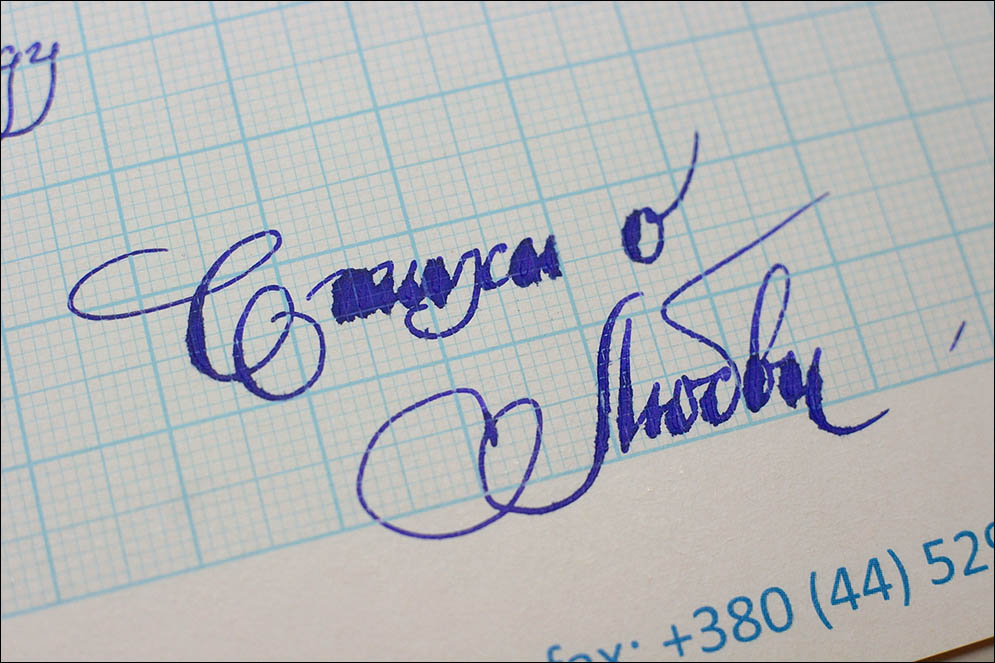 Стихи о
Любви
fax: +380 (44) 529